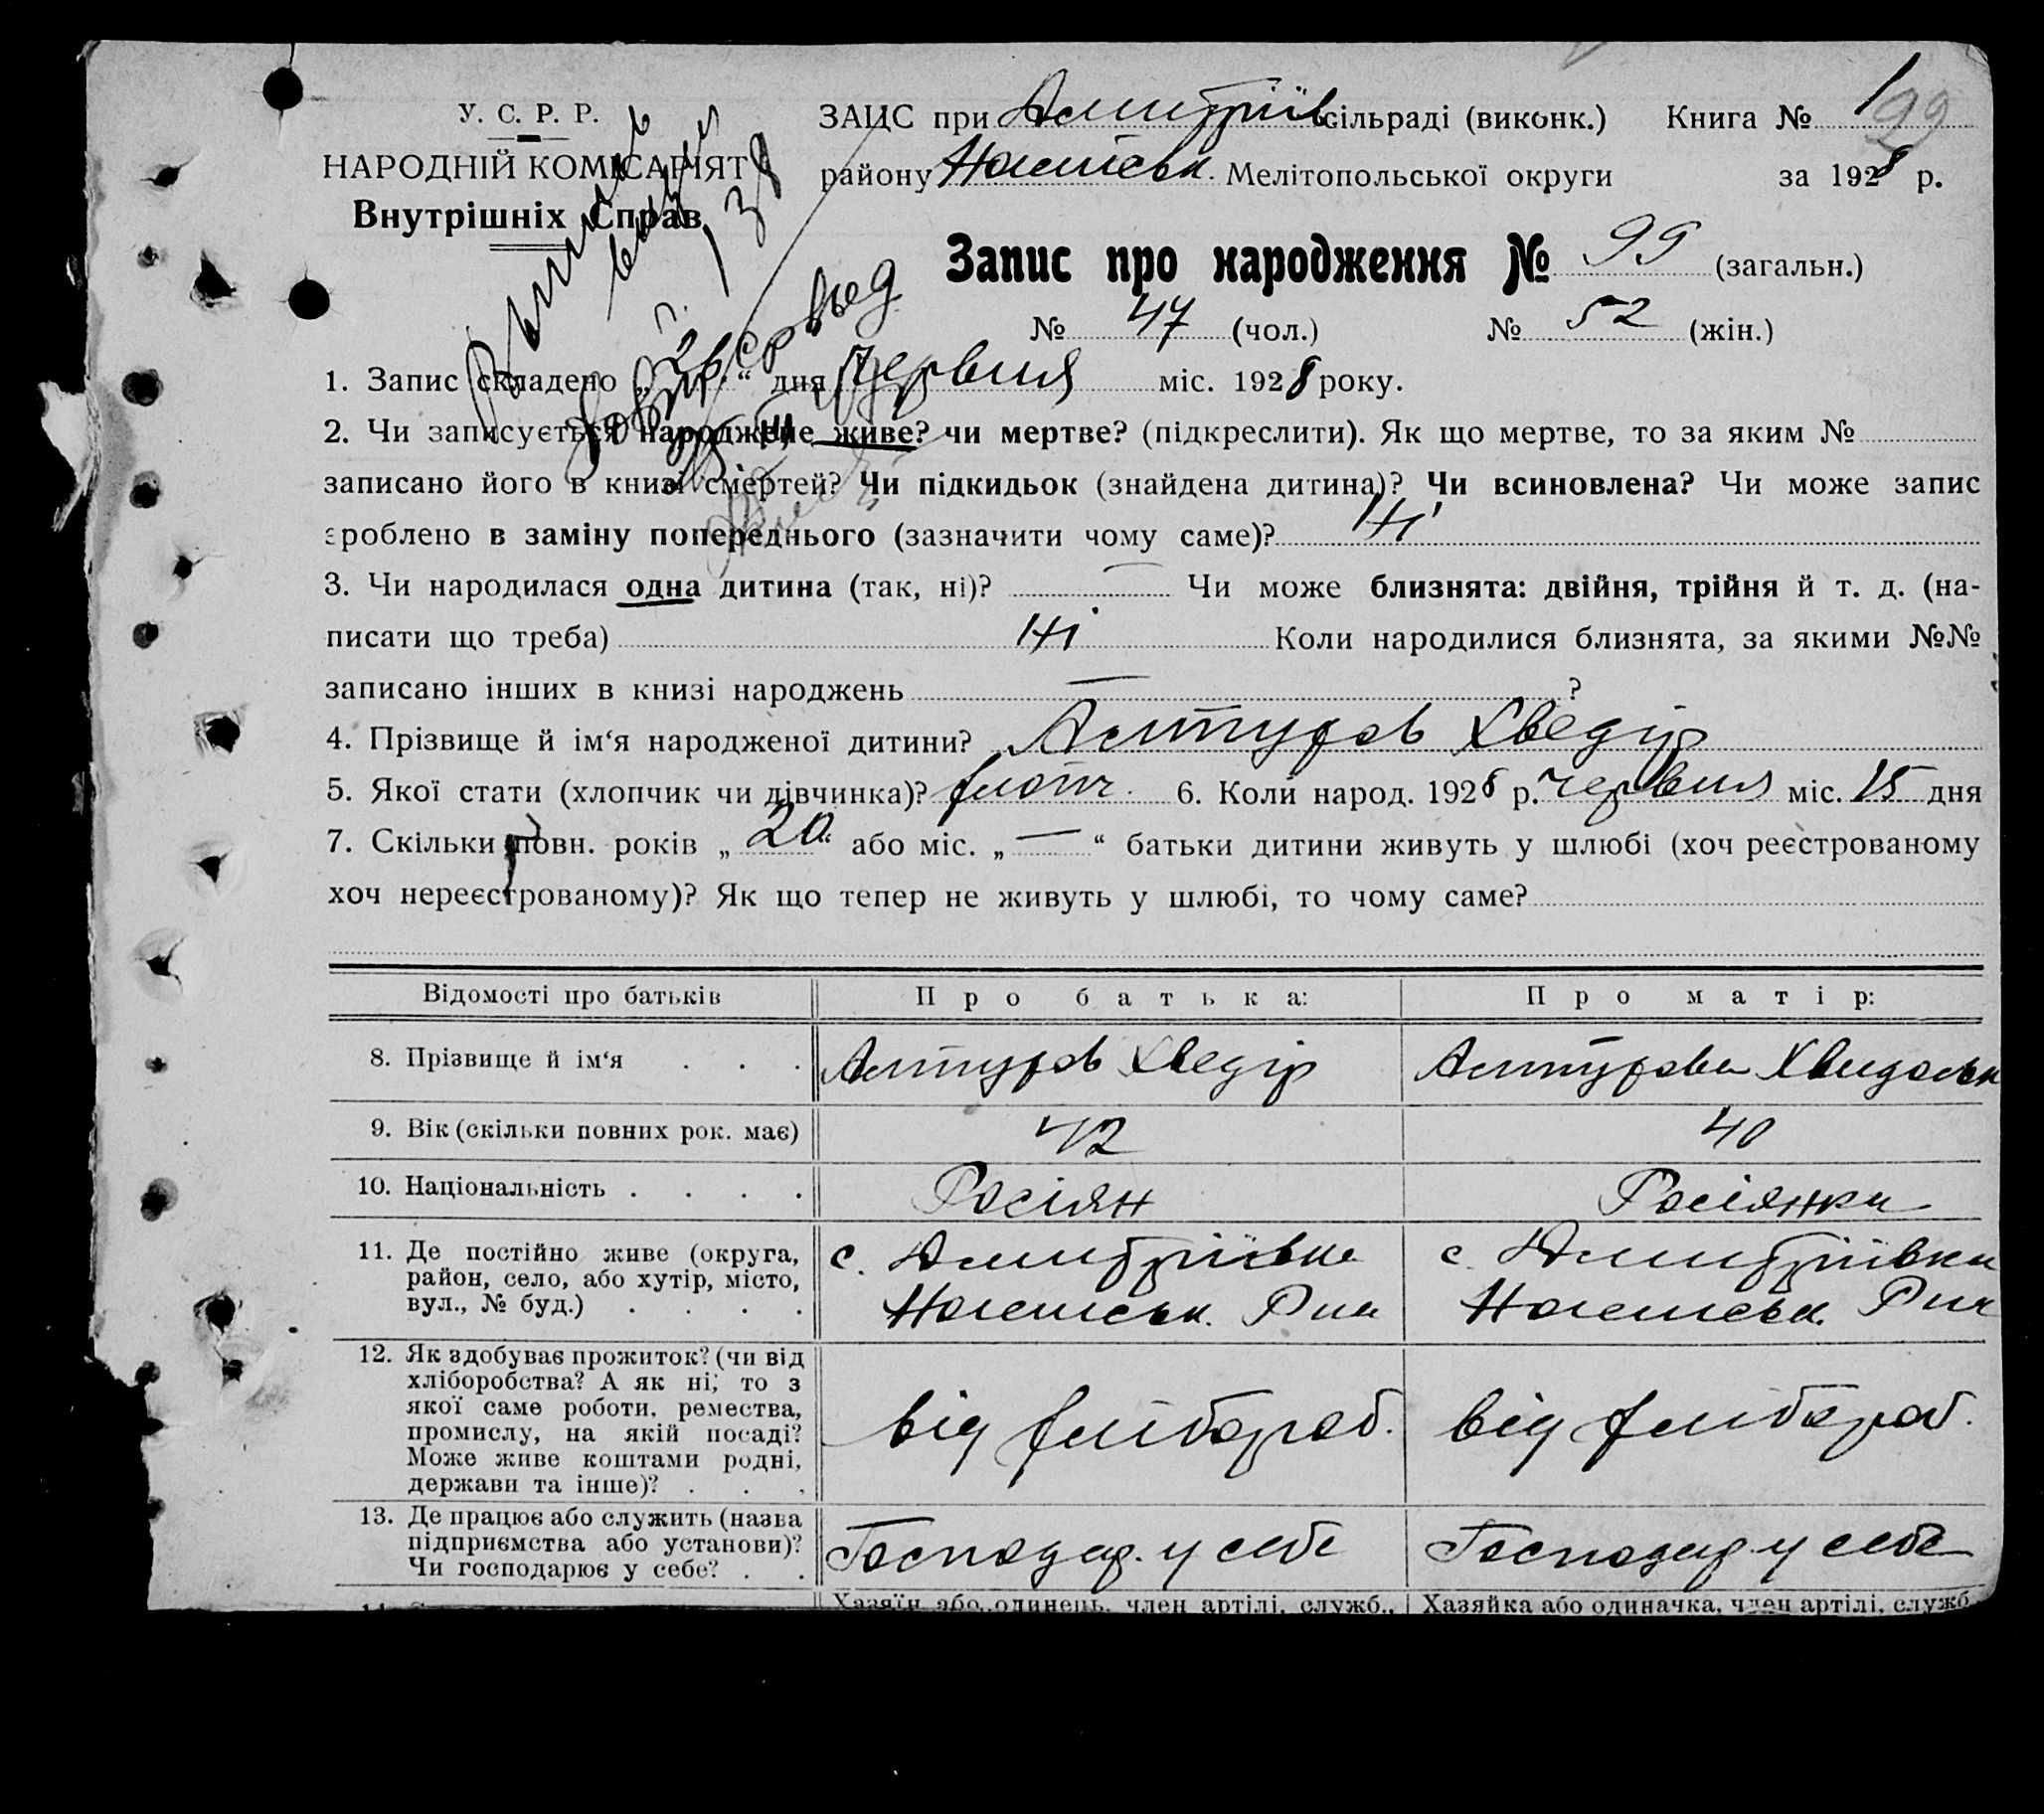 У. С. Р. Р.
НАРОДНІЙ КОМІСАРІЯТ
Внутрішніх Справ
ЗАЦС при Дмитріїв сільраді (виконк.) Книга № 1 99
району Мелітопольської округи за 1928 р.
Запис про народження № 99 (загальн.)
№ 47 (чол.) № 52 (жін.)
1. Запис складено „ “ дня червня міс. 1928 року.
2. Чи записується народжене живе? чи мертве? (підкреслити). Як що мертве, то за яким №
записано його в книзі смертей? Чи підкидьок (знайдена дитина)? Чи всиновлена? Чи може запис
зроблено в заміну попереднього (зазначити чому саме)? Ні
3. Чи народилася одна дитина (так, ні)? — Чи може близнята: двійня, трійня й т. д. (на-
писати що треба) Ні Коли народилися близнята, за якими №№
записано інших в книзі народжень — ?
4. Прізвище й ім‘я народженої дитини? Алтухов Хведір
5. Якої стати (хлопчик чи дівчинка)? хлопч. 6. Коли народ. 1928 р. червня міс. 15 дня
7. Скільки повн. років „ 20 “ або міс. „ — “ батьки дитини живуть у шлюбі (хоч реєстрованому
хоч нереєстрованому)? Як що тепер не живуть у шлюбі, то чому саме?
Відомості про батьків Про батька: Про матір:
8. Прізвище й ім‘я . . . Алтухов Хведір Алтухова
9. Вік (скільки повних рок. має) 42 40
10. Національність . . . . Росіян Росіянка
11. Де постійно живе (округа,
район, село, або хутір, місто,
вул., № буд.) . . . .
с. Дмитріївка
с. Дмитріївка
12. Як здобуває прожиток? (чи від
хліборобства? А як ні, то з
якої саме роботи, ремества,
промислу, на якій посаді?
Може живе коштами родні,
держави та інше)? . . .
від хлібороб.
від хлібороб.
13. Де працює або служить (назва
підприємства або установи)?
Чи господарює у себе? . .
Господар. у себе
Господар. у себе
Хазяїн або одинець, член артілі, служб., Хазяйка або одиначка, член артілі, служб.